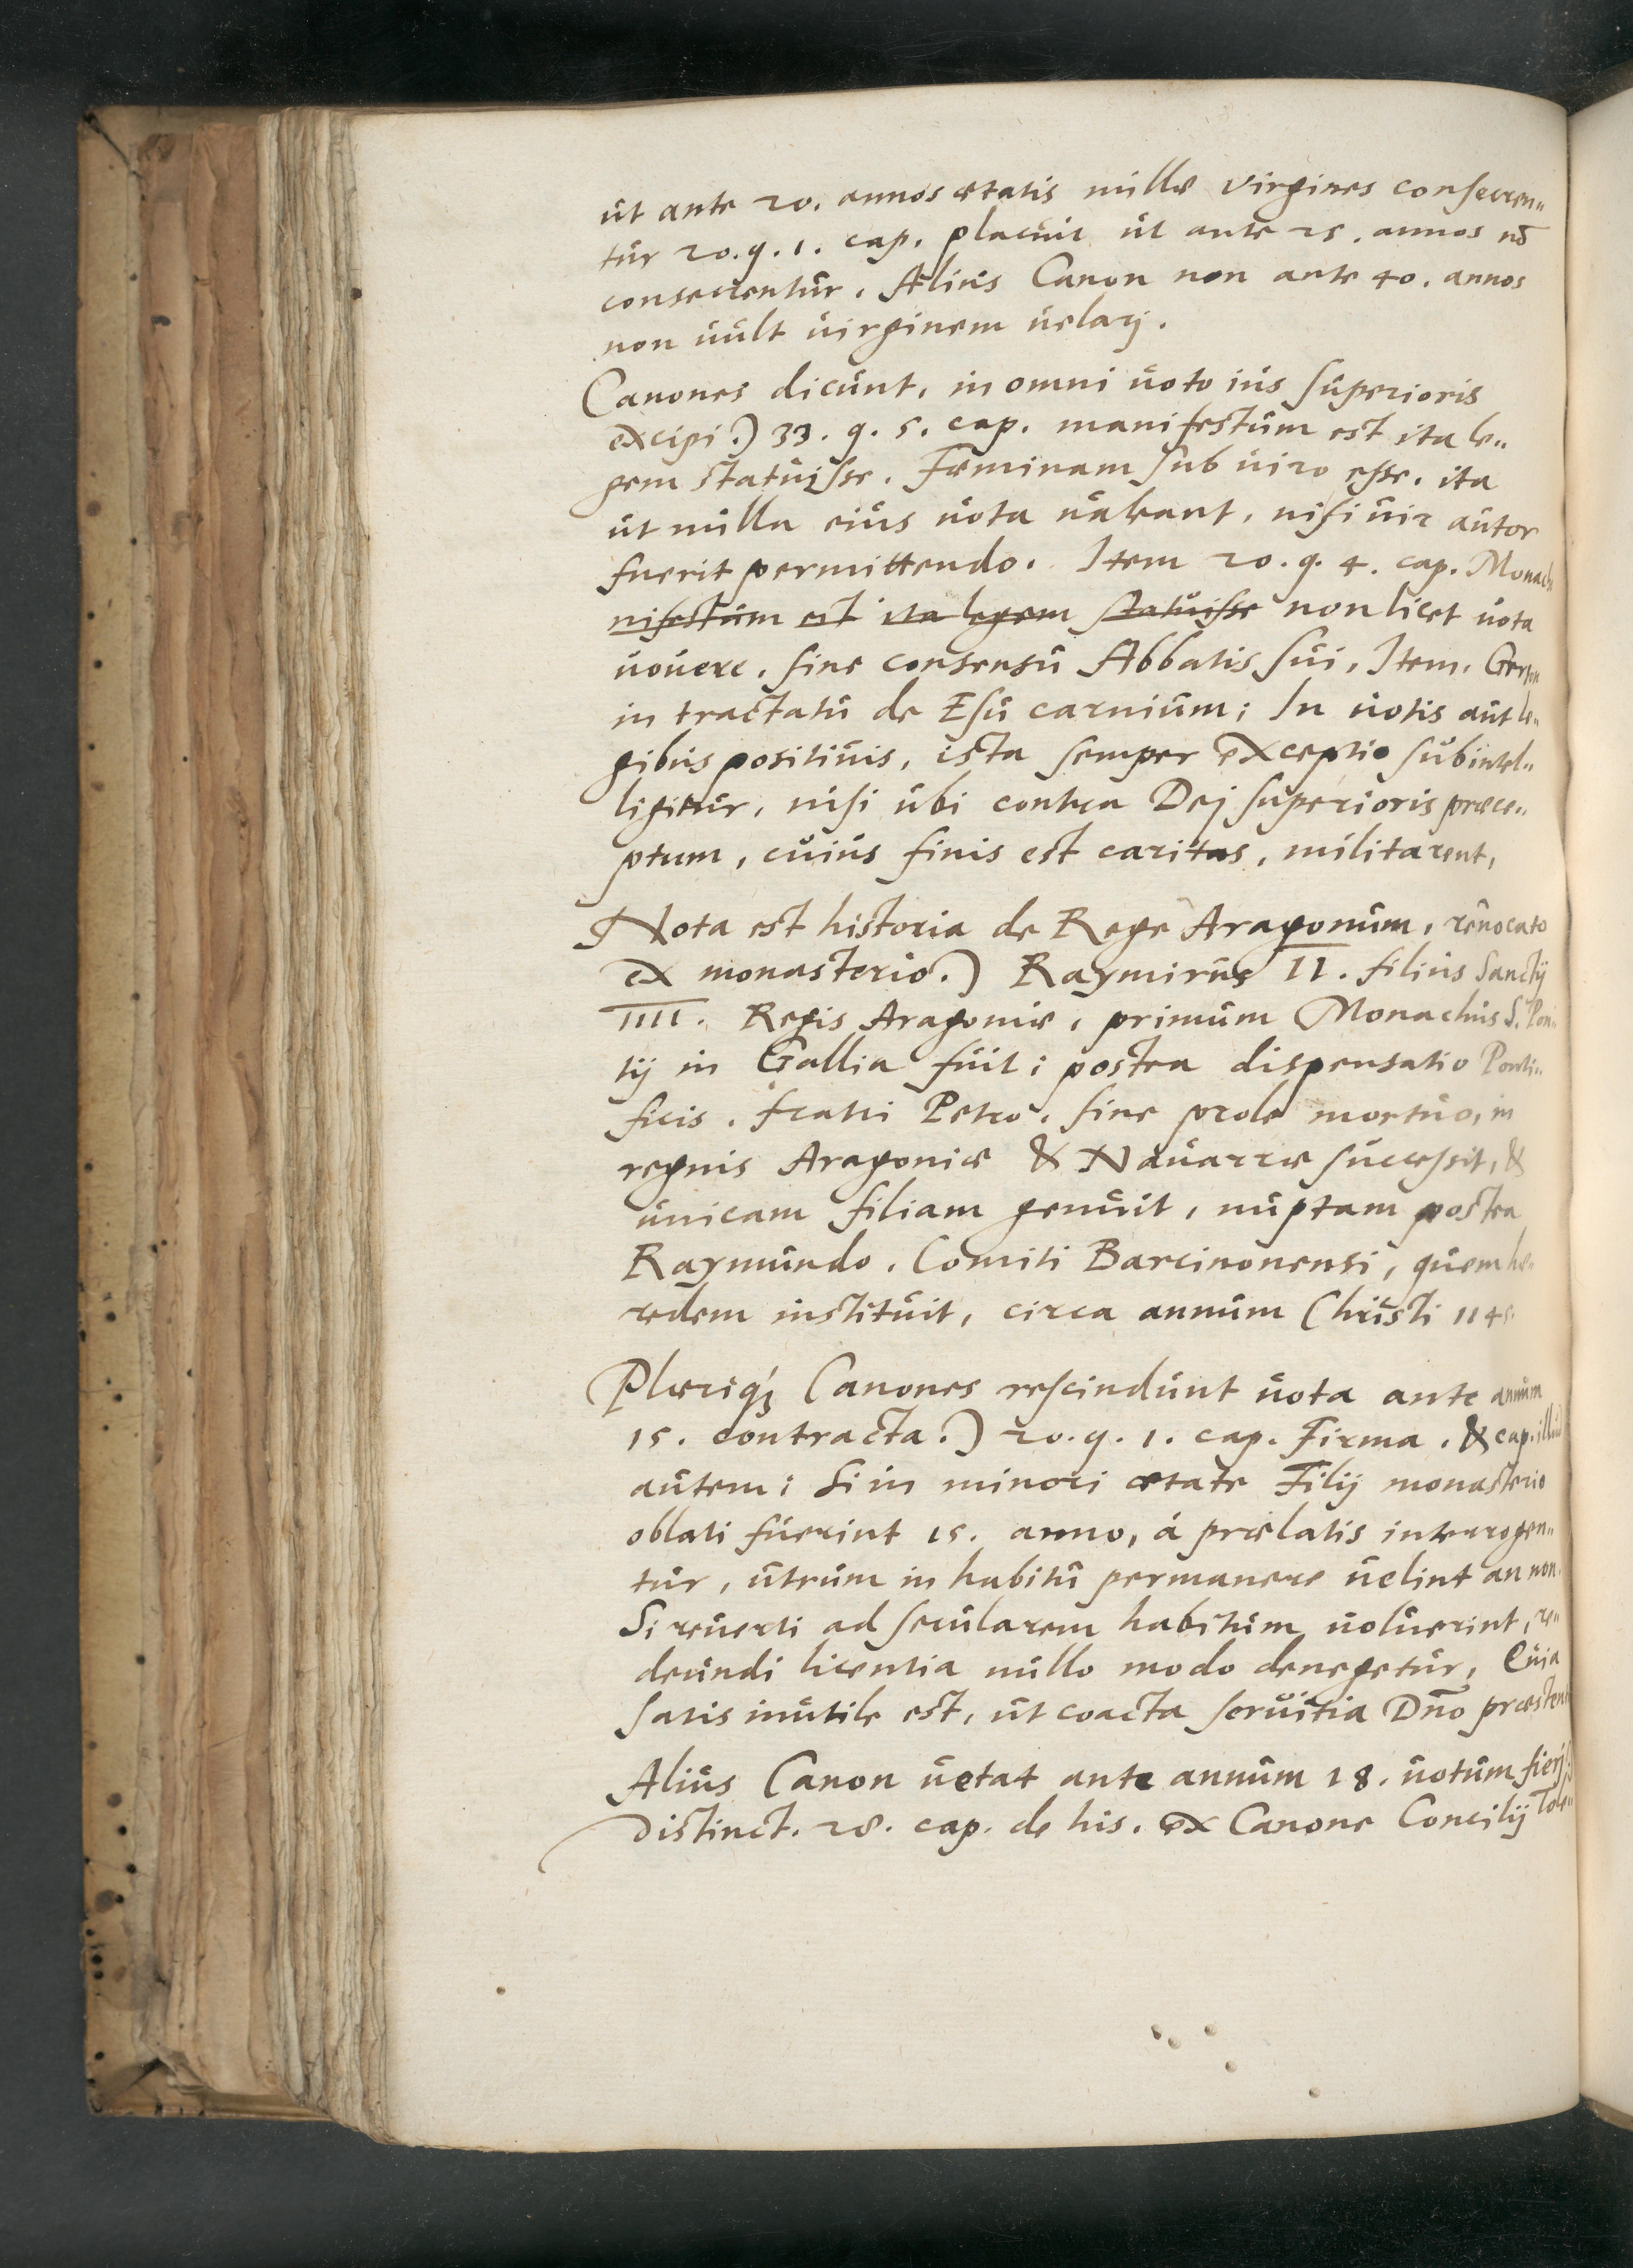 ut ante 20. annos ætatis nullæ virgines consecren„
tur 20. q. 1. cap. placuit ut ante 25. annos nō
consecrentur. Alius Canon non ante 40. annos
non uult uirginem uelarj.
Canones dicunt, in omni uoto ius superioris
excipi.) 33. q. 5. cap. manifestum est ita le„
gem statuisse. Fæminam sub uiro esse. ita
ut nulla eius uota ualeant, nisi uir autor
fuerit permittendo. Item 20. q. 4. cap. Monach
nifestum est ita legem statuisse non licet uota
uouere. sine consensu Abbatis sui, Item. Gerson
in tractatu de Esu carnium; In uotis aut le„
gibus positiuis, ista semper exceptio subintel„
ligitur, nisi ubi contra Dej superioris præce„
ptum, cuius finis est caritas, militarent,
Nota est historia de Rege Aragonum, reuocato
ex monasterio.) Raymirus II. filius Sanctij
IIII. Regis Aragoniæ, primum Monachus S. Pon„
tij in Gallia fuit; postea dispensatio Ponti„
ficis. fratri Petro. sine prole mortuo, in
regnis Aragoniæ & Nauarræ successit, &
unicam filiam genuit, nuptam postea
Raymundo. Comiti Barcinonensi, quem hæ„
redem instituit, circa annum Christi 114
Plæriq́ꝫ Canones rescindunt uota ante annum
15. contracta.) 20. q. 1. cap. Firma. & cap. illud
autem; Si in minori ætate Filij monasterio
oblati fuerint 15. anno, á prælatis interrogen„
tur, utrum in habitu permanere uelint an non.
Si reuerti ad secularem habitum uoluerint, re„
deundi licentia nullo modo denegetur, Quia
satis inutile est, ut coacta seruitia Dn̄o præstent
Alius Canon uetat ante annum 18. uotum fierj
Distinct. 28. cap. de his. ex Canone Concilij Tole„